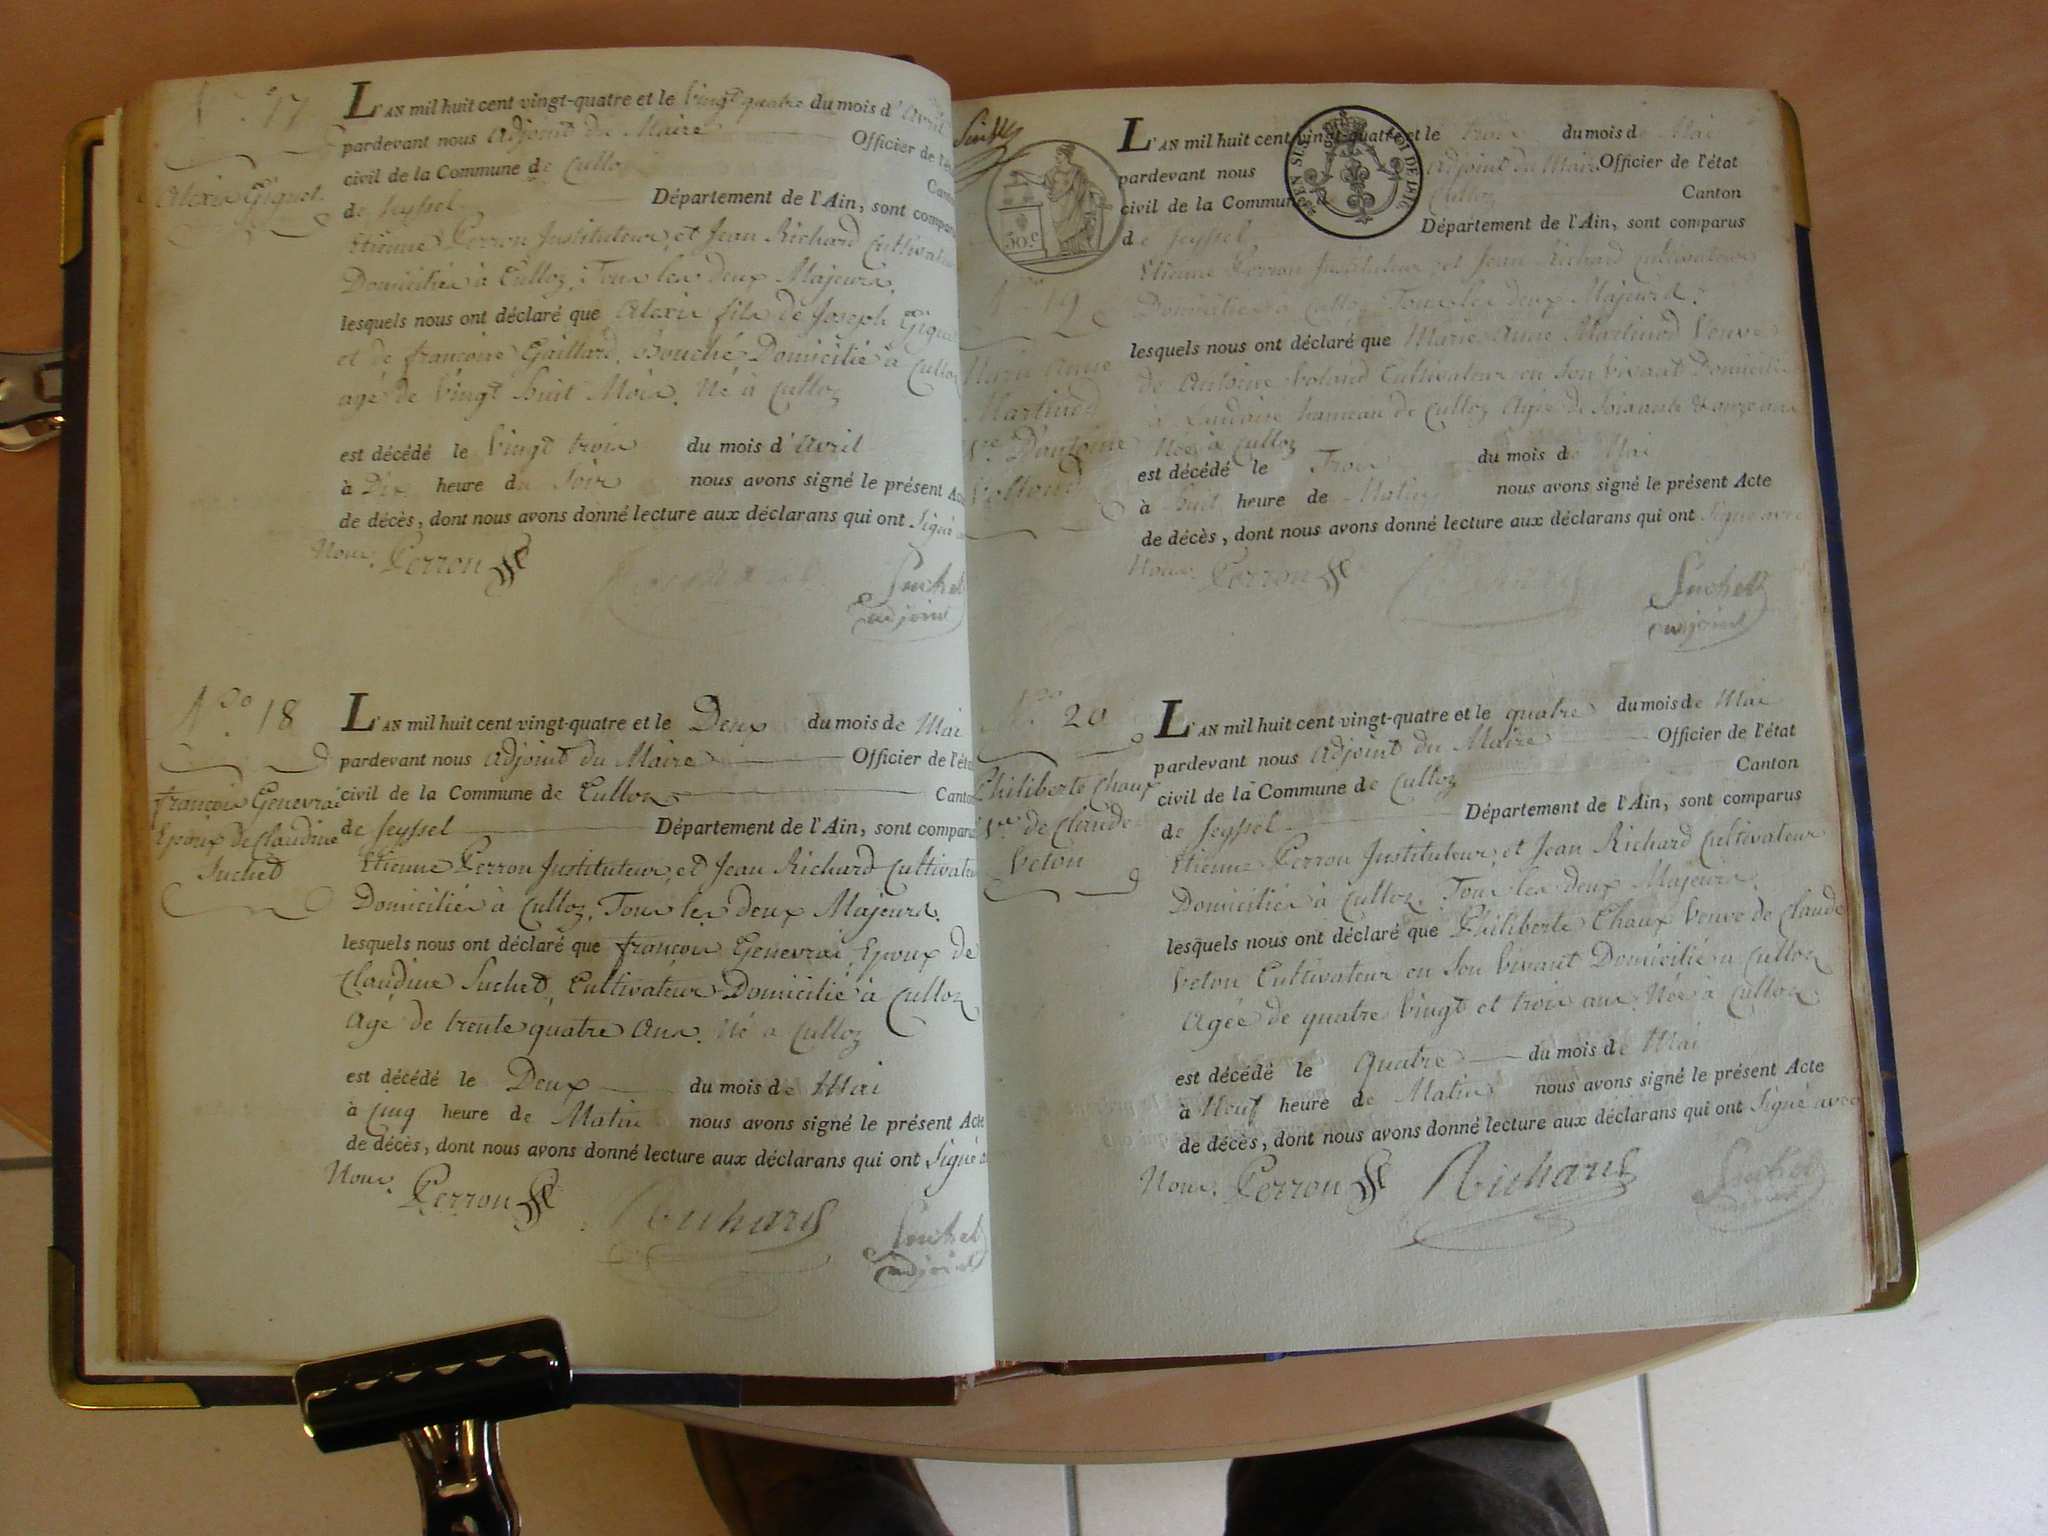 N.° 17
Alexis Gignet.
L'AN mil huit cent vingt-quatre et le Vingt quatre du mois d'Avril
pardevant nous Adjoint du Maire Officier de l'é
civil de la Commune de Culloz Canton
de Seyssel Département de l'Ain, sont comparus
Etienne Perron Instituteur, et Jean Richard Cultivateur
Domiciliés à Culloz, Tous les deux Majeurs.
lesquels nous ont déclaré que Alexis fils de Joseph Gignet
et de françoise Gaillard, Domicilié à Culloz
agé de Vingt huit Mois. Né à Culloz
est décédé le Vingt trois du mois d'Avril
à Dix heure du Soir nous avons signé le présent Acte
de décès, dont nous avons donné lecture aux déclarans qui ont Signé
Nous. Perron
Suchet
adjoint
N.° 18
françois Genevrai
Epoux de Claudine
Suchet
L'AN mil huit cent vingt-quatre et le Deux du mois de Mai
pardevant nous Adjoint du Maire Officier de l'éta
civil de la Commune de Culloz Canton
de Seyssel Département de l'Ain, sont comparus
Etienne Perron Instituteur, et Jean Richard Cultivateur
Domiciliés à Culloz, Tous les deux Majeurs.
lesquels nous ont déclaré que françois Genevrai, Epoux de
Claudine Suchet, Cultivateur Domicilié à Culloz
Agé de trente quatre Ans. Né à Culloz
est décédé le Deux du mois de Mai
à Cinq heure de Matin nous avons signé le présent Acte
de décès, dont nous avons donné lecture aux déclarans qui ont Signé a
Nous. Perron Richard Suchet
adjoint
50.c
N.° 19
Marie Anne
Martinod
V.e D'antoine
Volland
L'AN mil huit cent vingt-quatre et le trois du mois de Mai
pardevant nous Adjoint du Maire Officier de l'état
civil de la Commune de Culloz Canton
de Seyssel Département de l'Ain, sont comparus
Etienne Perron Instituteur, et Jean Richard Cultivateur
Domiciliés à Culloz, Tous les deux Majeurs.
lesquels nous ont déclaré que Marie Anne Martinod Veuve
de Antoine Voland Cultivateur en son vivant Domicilié
à Landaize hameau de Culloz Agée de Soixante & onze ans
Née à Culloz
est décédé le Trois du mois de Mai
à huit heure de Matin nous avons signé le présent Acte
de décès, dont nous avons donné lecture aux déclarans qui ont Signé avec
Nous. Perron Suchet
adjoint
N.° 20
Philiberte Chaux
V.e de Claude
Veton
L'AN mil huit cent vingt-quatre et le quatre du mois de Mai
pardevant nous Adjoint du Maire Officier de l'état
civil de la Commune de Culloz Canton
de Seyssel Département de l'Ain, sont comparus
Etienne Perron Instituteur, et Jean Richard Cultivateur
Domiciliés à Culloz, Tous les deux Majeurs.
lesquels nous ont déclaré que Philiberte Chaux Veuve de Claude
Veton Cultivateur en Son Vivant Domicilié à Culloz
Agée de quatre Vingt et trois ans. Née à Culloz.
est décédé le Quatre du mois de Mai
à Neuf heure de Matin nous avons signé le présent Acte
de décès, dont nous avons donné lecture aux déclarans qui ont Signé avec
Nous. Perron Richard Suchet
adjoint